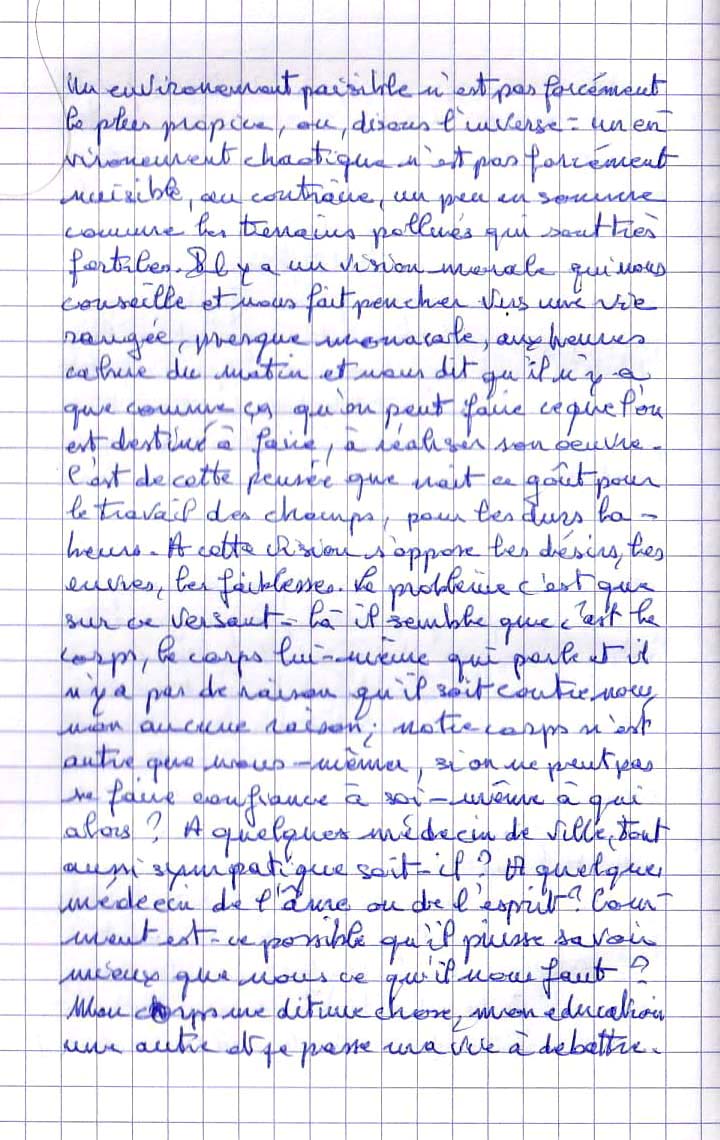 Un environement paisible n'est pas forcément
le plus propice, ou, disons l'inverse = un en-
vironement chaotique n'est pas forcément
nuisible, au contraire, un peu en somme
comme les terrains pollués qui sont très
fertiles. Il y a un vision morale qui nous
conseille et nous fait pencher vers une vie
rangée, presque monacale, aux heures
calme du matin et nous dit qu'il n'y a
que comme ça qu'on peut faire ce que l'on
est destiné à faire, à réaliser son oeuvre.
C'est de cette pensée que nait ce goût pour
le travail des champs, pour les durs la-
beurs. A cette vision s'oppose les désirs, les
envies, les faiblesses. Le problème c'est que
sur ce versant-là il semble que c'est le
corps, le corps lui-même qui parle et il
n'y a pas de raison qu'il soit contre nous,
non aucune raison; notre corps n'est
autre que nous-même, si on ne peut pas
se faire confiance à soi-même à qui
alors ? A quelques médecin de ville, tout
aussi sympatique soit-il ? A quelque
médecin de l'âme ou de l'esprit ? Com-
ment est-ce possible qu'il puisse savoir
mieux que nous ce qu'il nous faut ?
Mon corps me dit une chose, mon éducation
une autre et je passe ma vie à debattre.